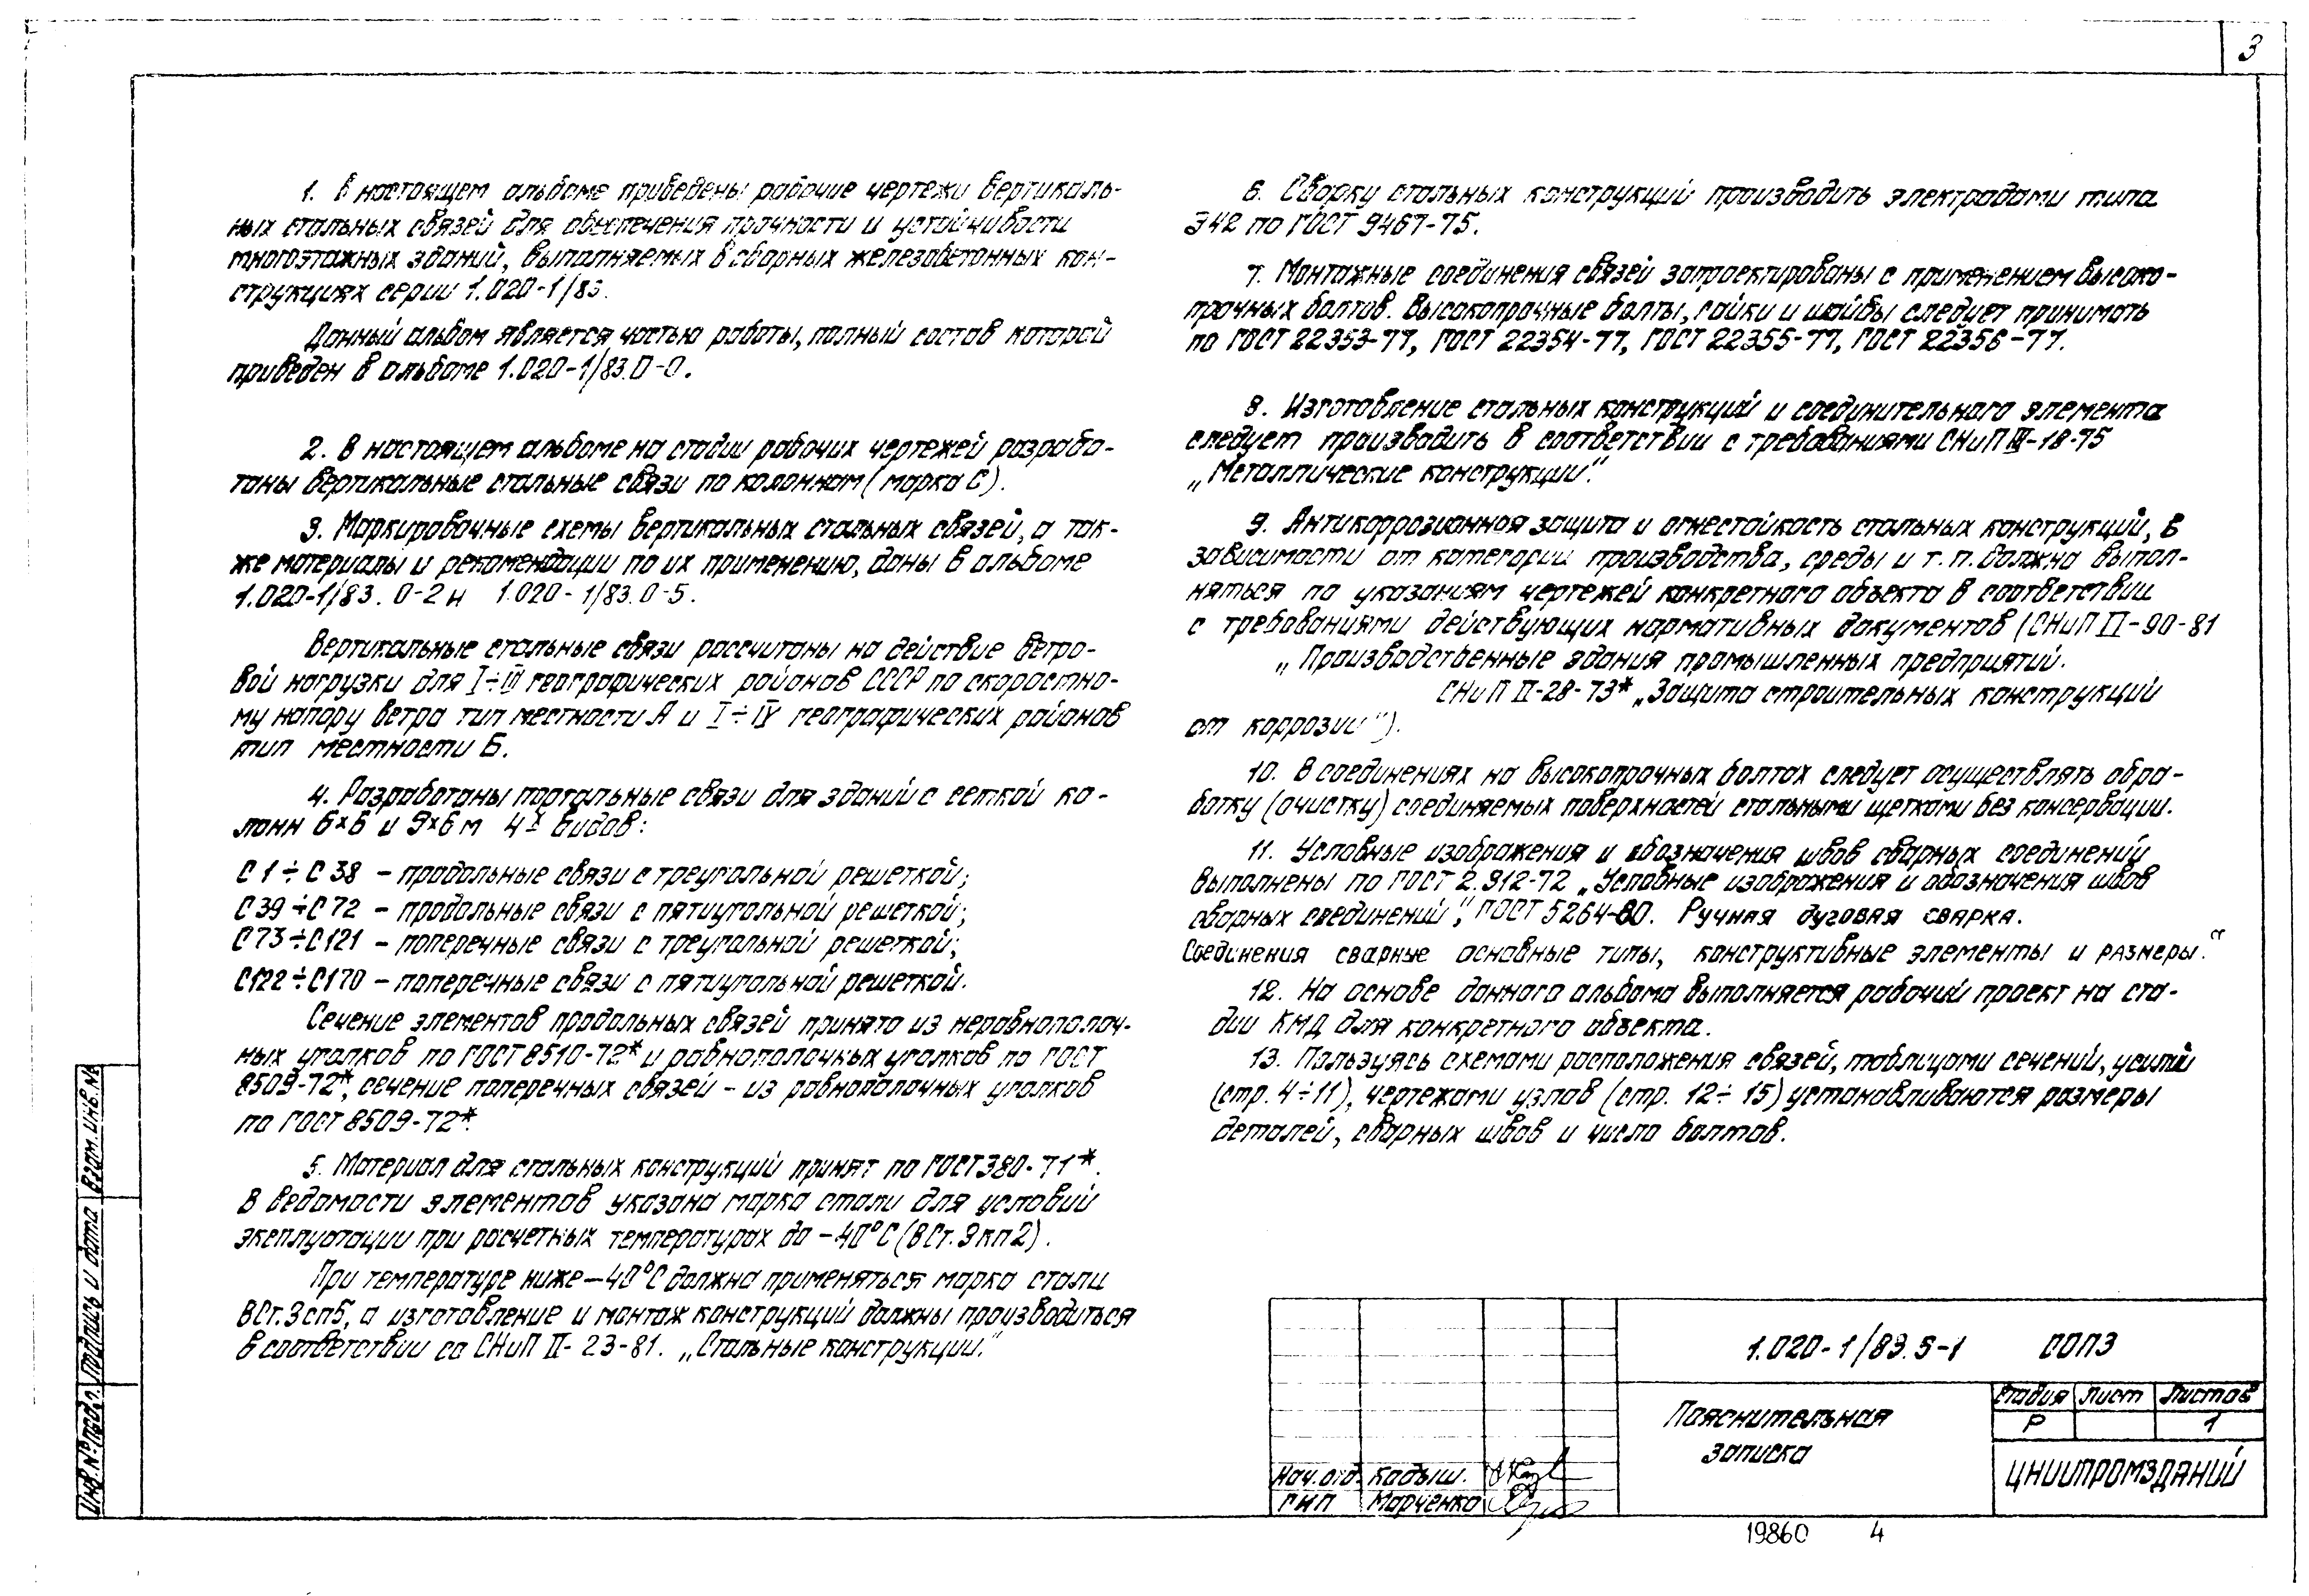 3
1. В настоящем альбоме приведены рабочие чертежи вертикаль-
ных стальных связей для обеспечения прочности и устойчивости
многоэтажных зданий, выполняемых в сборных железобетонных кон-
струкциях серии 1.020-1/83.
Данный альбом является частью работы, полный состав которой
приведен в альбоме 1.020-1/83.0-0.
2. В настоящем альбоме на стадии рабочих чертежей разрабо-
таны вертикальные стальные связи по колоннам (марка С).
3. Маркировочные схемы вертикальных стальных связей, а так-
же материалы и рекомендации по их применению, даны в альбоме
1.020-1/83. 0-2 и 1.020-1/83.0-5.
Вертикальные стальные связи рассчитаны на действие ветро-
вой нагрузки для I÷III географических районов СССР по скоростно-
му напору ветра тип местности А и I÷IV географических районов
тип местности Б.
4. Разработаны портальные связи для зданий с сеткой ко-
лонн 6×6 и 9×6 м 4х видов:
С 1 ÷ С 38 – продольные связи с треугольной решеткой;
С 39 ÷ С 72 – продольные связи с пятиугольной решеткой;
С 73 ÷ С121 – поперечные связи с треугольной решеткой;
С122 ÷ С170 – поперечные связи с пятиугольной решеткой.
Сечение элементов продольных связей принято из неравнополоч-
ных уголков по ГОСТ 8510-72* и равнополочных уголков по ГОСТ
8509-72*, сечение поперечных связей – из равнополочных уголков
по ГОСТ 8509-72*.
5. Материал для стальных конструкций принят по ГОСТ 380-71*.
В ведомости элементов указана марка стали для условий
эксплуатации при расчетных температурах до –40°С (ВСт.3кп2).
При температуре ниже –40°С должна применяться марка стали
ВСт.3сп5, а изготовление и монтаж конструкций должны производиться
в соответствии со СНиП II-23-81. „Стальные конструкции.“
6. Сварку стальных конструкций производить электродами типа
Э42 по ГОСТ 9467-75.
7. Монтажные соединения связей запроектированы с применением высоко-
прочных болтов. Высокопрочные болты, гайки и шайбы следует принимать
по ГОСТ 22353-77, ГОСТ 22354-77, ГОСТ 22355-77, ГОСТ 22356-77.
8. Изготовление стальных конструкций и соединительного элемента
следует производить в соответствии с требованиями СНиП III-18-75
„Металлические конструкции“.
9. Антикоррозионная защита и огнестойкость стальных конструкций, в
зависимости от категории производства, среды и т.п. должна выпол-
няться по указаниям чертежей конкретного объекта в соответствии
с требованиями действующих нормативных документов (СНиП II-90-81
„Производственные здания промышленных предприятий.
СНиП II-28-73* „Защита строительных конструкций
от коррозии“).
10. В соединениях на высокопрочных болтах следует осуществлять обра-
ботку (очистку) соединяемых поверхностей стальными щетками без консервации.
11. Условные изображения и обозначения швов сварных соединений
выполнены по ГОСТ 2.312-72 „Условные изображения и обозначения швов
сварных соединений“, ГОСТ 5264-80. Ручная дуговая сварка.
Соединения сварные основные типы, конструктивные элементы и размеры.“
12. На основе данного альбома выполняется рабочий проект на ста-
дии КМД для конкретного объекта.
13. Пользуясь схемами расположения связей, таблицами сечений, усилий
(стр. 4÷11), чертежами узлов (стр. 12÷15) устанавливаются размеры
деталей, сварных швов и число болтов.
Инв.№ подл. Подпись и дата Взам.инв.№
1.020-1/83.5-1 00ПЗ
Пояснительная
записка
Стадия Лист Листов
Р 1
ЦНИИПРОМЗДАНИЙ
Нач.отд. Кадыш.
ГИП Марченко
19860 4